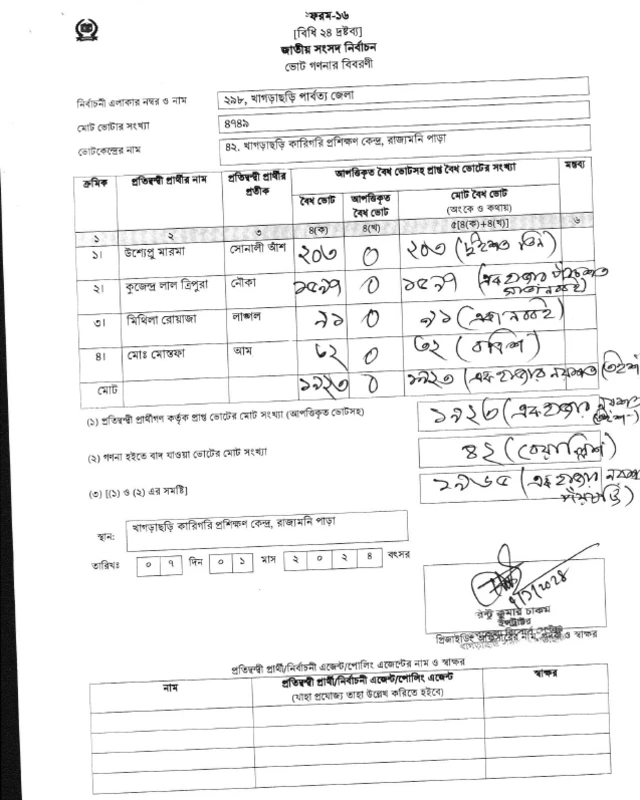 ফরম-১৬
[বিধি ২৪ দ্রষ্টব্য]
জাতীয় সংসদ নির্বাচন
ভোট গণনার বিবরণী
নির্বাচনী এলাকার নম্বর ও নাম ২৯৮, খাগড়াছড়ি পার্বত্য জেলা
মোট ভোটার সংখ্যা ৪৭৪৯
ভোটকেন্দ্রের নাম ৪২, খাগড়াছড়ি কারিগরি প্রশিক্ষণ কেন্দ্র, রাজামনি পাড়া
ক্রমিক প্রতিদ্বন্দ্বী প্রার্থীর নাম প্রতিদ্বন্দ্বী প্রার্থীর প্রতীক আপত্তিকৃত বৈধ ভোটসহ প্রাপ্ত বৈধ ভোটের সংখ্যা মন্তব্য
বৈধ ভোট আপত্তিকৃত বৈধ ভোট মোট বৈধ ভোট (অংকে ও কথায়)
১ ২ ৩ ৪(ক) ৪(খ) ৫[৪(ক)+৪(খ)] ৬
১। উশ্যেপ্রু মারমা সোনালী আঁশ ২০৩ ০ ২০৩ (দুইশত তিন)
২। কুজেন্দ্র লাল ত্রিপুরা নৌকা ১৫৯৭ ০ ১৫৯৭ (এক হাজার পাঁচশত সাতানব্বই)
৩। মিথিলা রোয়াজা লাঙ্গল ৯১ ০ ৯১ (একানব্বই)
৪। মোঃ মোস্তফা আম ৩২ ০ ৩২ (বত্রিশ)
মোট ১৯২৩ ০ ১৯২৩ (এক হাজার নয়শত তেইশ)
(১) প্রতিদ্বন্দ্বী প্রার্থীগণ কর্তৃক প্রাপ্ত ভোটের মোট সংখ্যা (আপত্তিকৃত ভোটসহ) ১৯২৩ (এক হাজার নয়শত তেইশ)
(২) গণনা হইতে বাদ যাওয়া ভোটের মোট সংখ্যা ৪২ (বেয়াল্লিশ)
(৩) [(১) ও (২) এর সমষ্টি] ১৯৬৫ (এক হাজার নয়শত পঁয়ষট্টি)
স্থান: খাগড়াছড়ি কারিগরি প্রশিক্ষণ কেন্দ্র, রাজামনি পাড়া
তারিখঃ ০ ৭ দিন ০ ১ মাস ২ ০ ২ ৪ বৎসর
৭/১/২০২৪
রিন্টু কুমার চাকমা
ইন্সট্রাক্টর
প্রিজাইডিং অফিসারের নাম, পদবী ও স্বাক্ষর
প্রতিদ্বন্দ্বী প্রার্থী/নির্বাচনী এজেন্ট/পোলিং এজেন্টের নাম ও স্বাক্ষর
নাম প্রতিদ্বন্দ্বী প্রার্থী/নির্বাচনী এজেন্ট/পোলিং এজেন্ট স্বাক্ষর
(যাহা প্রযোজ্য তাহা উল্লেখ করিতে হইবে)